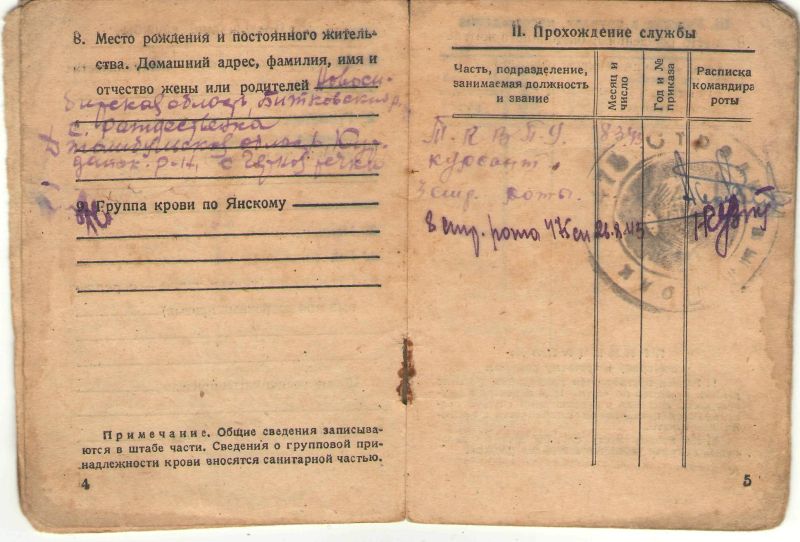 8. Место рождения и постоянного житель-
ства. Домашний адрес, фамилия, имя и
отчество жены или родителей Новоси-
бирская область, Битковский р,
с.
Джамбулская област, Кур-
дайск. р-н, с
9. Группа крови по Янскому
Примечание. Общие сведения записыва-
ются в штабе части. Сведения о групповой при-
надлежности крови вносятся санитарной частью.
4
II. Прохождение службы
Часть, подразделение,
занимаемая должность
и звание
Месяц и
число
Год и №
приказа
Расписка
командира
роты
Т. К. В. П. У.
курсант
3 стр. роты.
8 стр. рота 475 сп 26.8.43
5